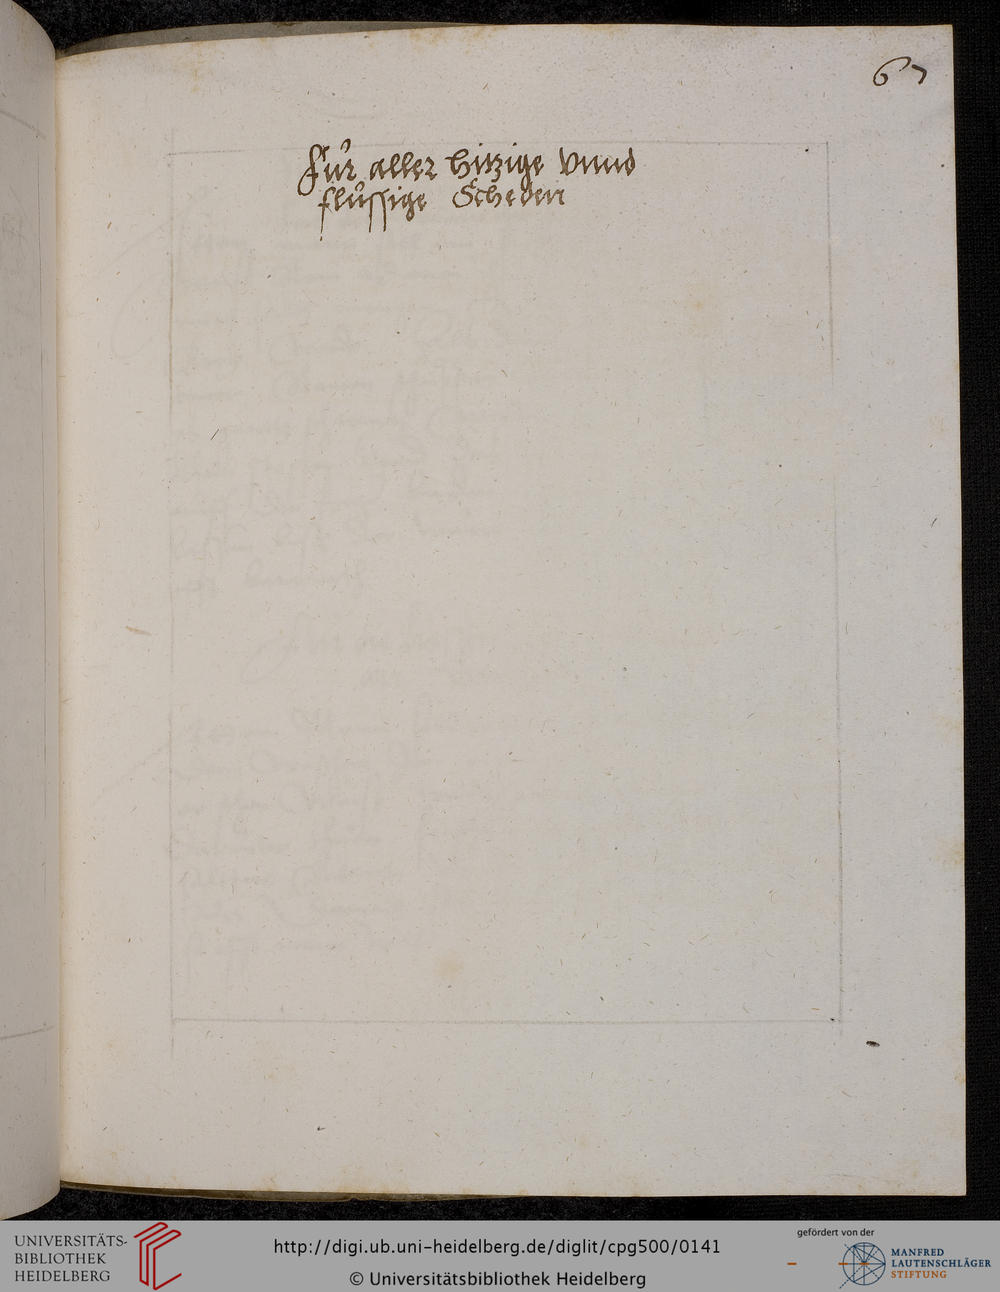 67
Für aller hitzige vnnd
flüssige Scheden
UNIVERSITÄTS-
BIBLIOTHEK
HEIDELBERG
http://digi.ub.uni-heidelberg.de/diglit/cpg500/0141
© Universitätsbibliothek Heidelberg
gefördert von der
MANFRED
LAUTENSCHLÄGER
STIFTUNG